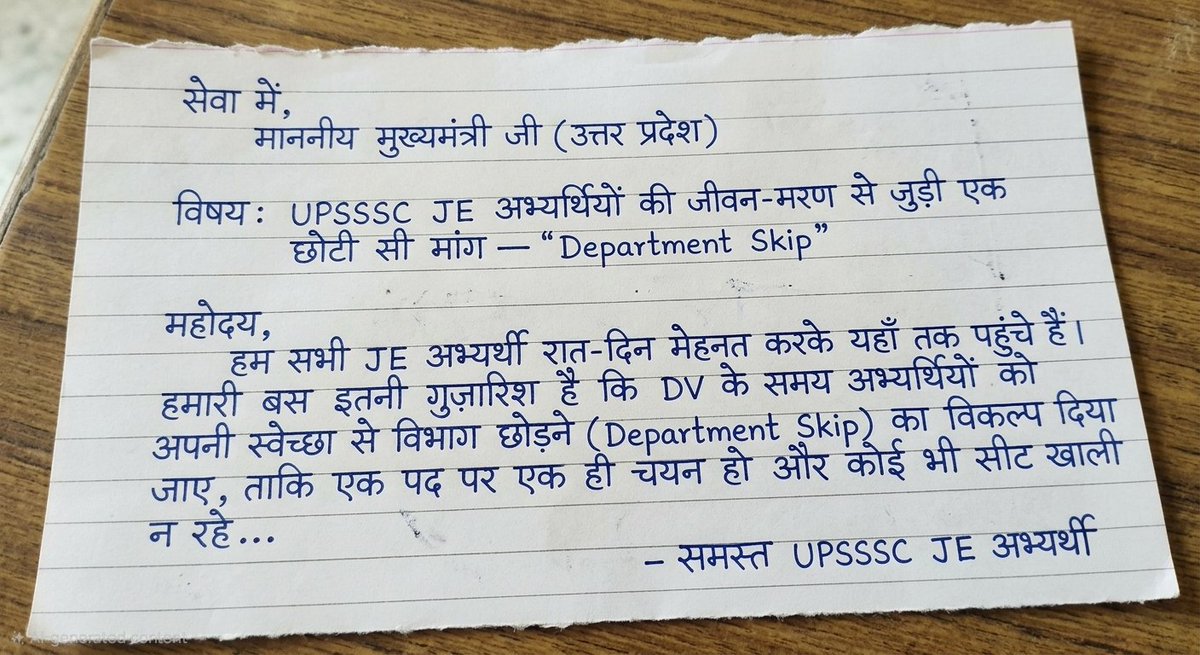 सेवा में,
माननीय मुख्यमंत्री जी (उत्तर प्रदेश)
विषय: UPSSSC JE अभ्यर्थियों की जीवन-मरण से जुड़ी एक
छोटी सी मांग — “Department Skip”
महोदय,
हम सभी JE अभ्यर्थी रात-दिन मेहनत करके यहाँ तक पहुंचे हैं।
हमारी बस इतनी गुज़ारिश है कि DV के समय अभ्यर्थियों को
अपनी स्वेच्छा से विभाग छोड़ने (Department Skip) का विकल्प दिया
जाए, ताकि एक पद पर एक ही चयन हो और कोई भी सीट खाली
न रहे...
- समस्त UPSSSC JE अभ्यर्थी
AI-generated content